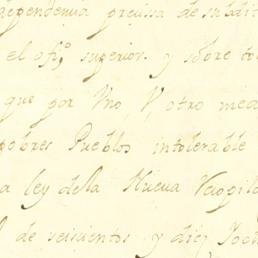 dependencia precissa de subdi
el ofiº superior. y sobre to
que por Vno, V, otro med
pobres Pueblos intolerable
a ley de la Nueva Recopil
l de seiscientos y diez y och